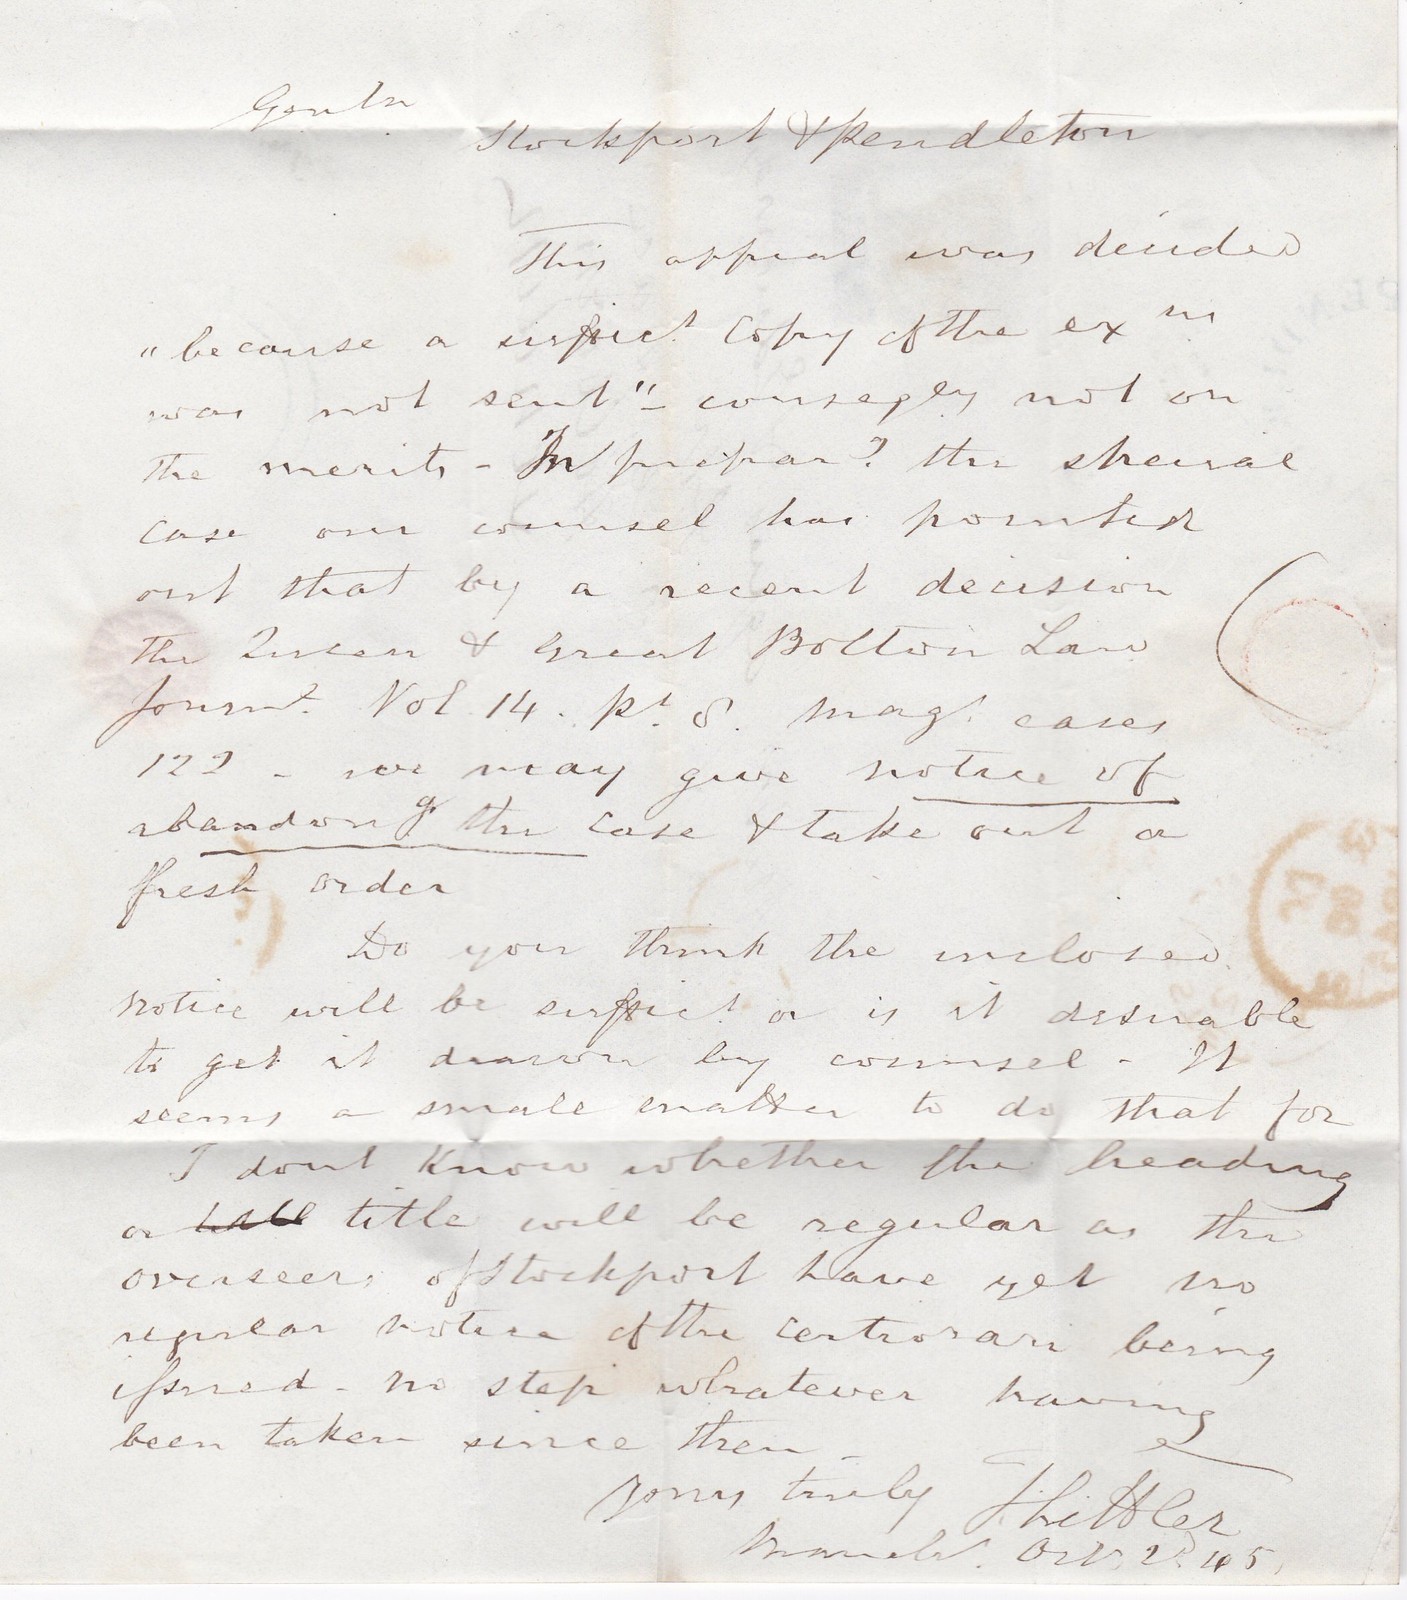 Gentn
Stockport & Pendleton
This appeal was decided
"because a suffict copy of the exns
was not sent" - conseqly not on
the merits - In preparg the special
case our counsel has pointed
out that by a recent decision
the Queen & Great Bolton Law
Journl. Vol 14. pt 8. Magt cases
122 - we may give notice of
abandong the case & take out a
fresh order
Do you think the inclosed
notice will be suffict or is it desirable
to get it drawn by counsel - It
seems a small matter to do that for
I dont know whether the heading
or title will be regular as the
overseers of Stockport have yet no
regular notice of the certiorari being
issued - no step whatever having
been taken since then -
Yours truly
Manchr. Oct. 2d 45.